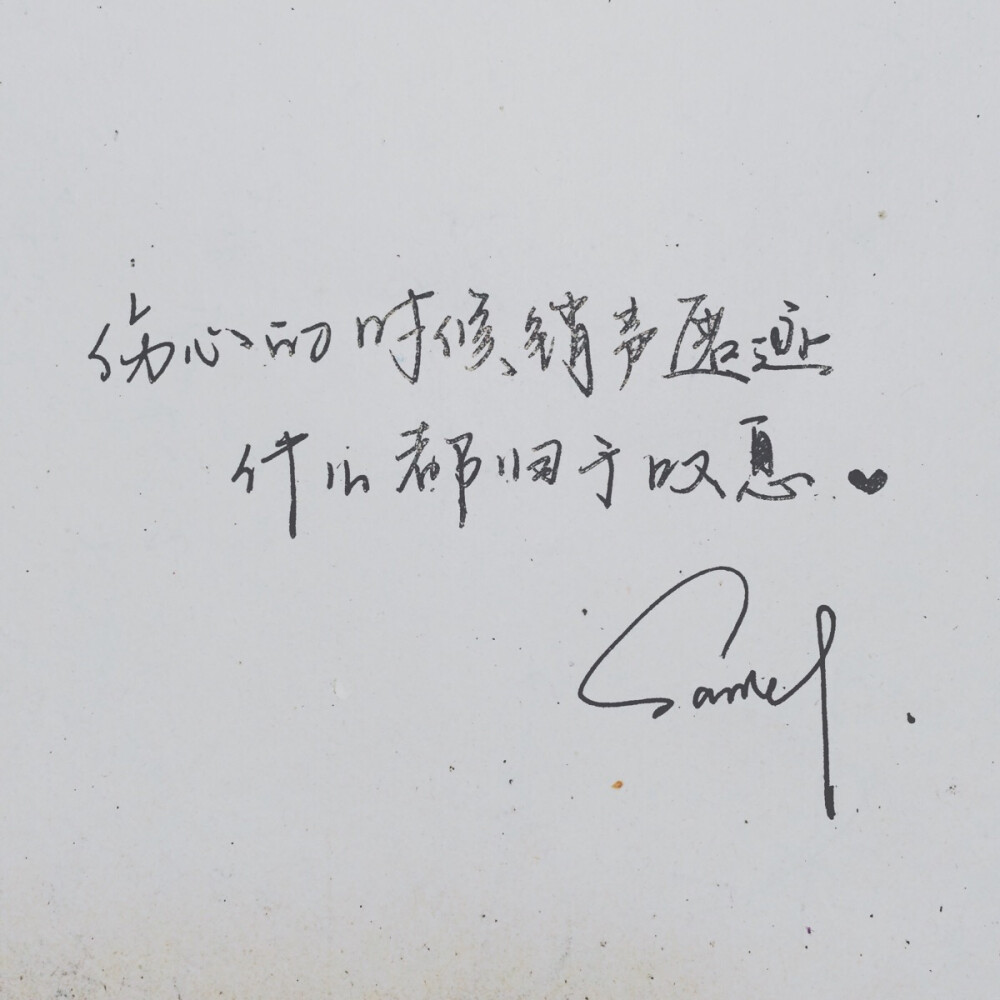 伤心的时候、销声匿迹
什么都归于叹息
Samel